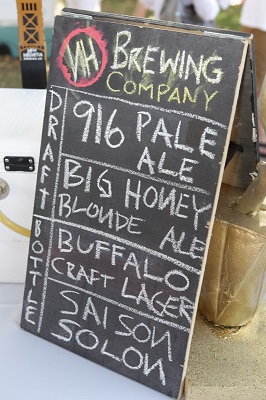 VH BREWING
COMPANY
DRAFT
916 PALE
ALE
BIG HONEY
BLONDE ALE
BOTTLE
BUFFALO
CRAFT LAGER
SAISON
SOLON